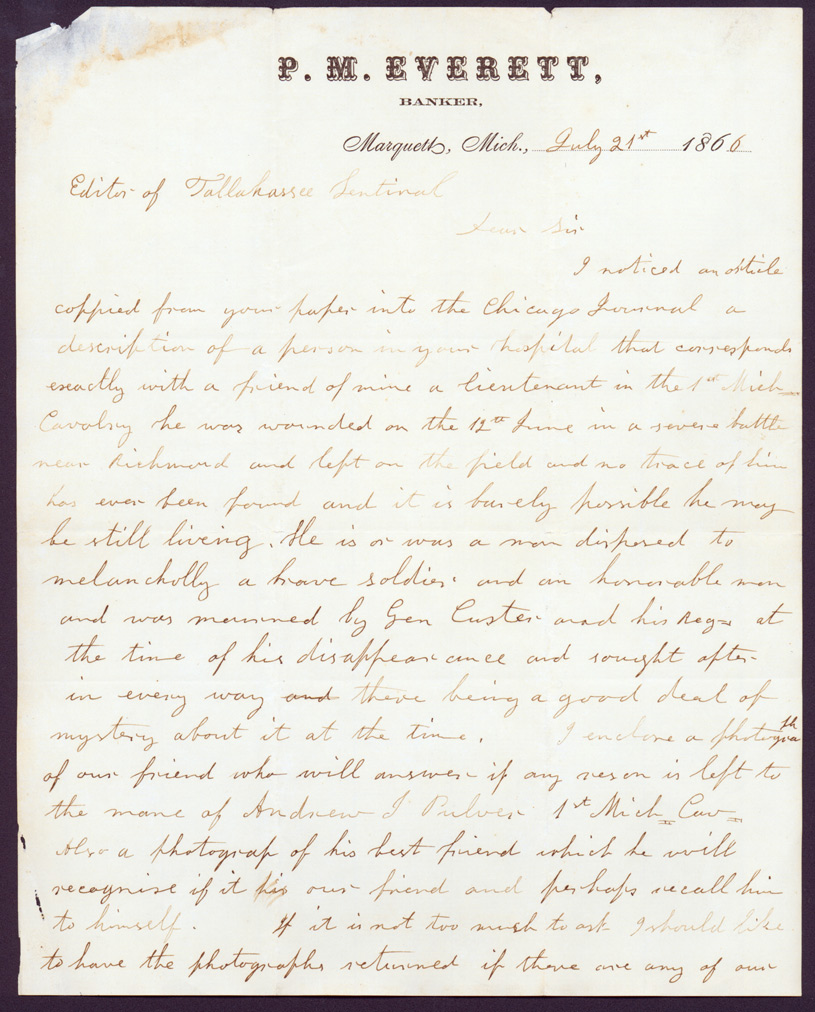 P. M. EVERETT,
BANKER,
Marquette, Mich., July 21st 1866
Editor of Tallahassee Sentinal
Dear Sir
I noticed an article
coppied from your paper into the Chicago Journal a
description of a person in your hospital that corresponds
exactly with a friend of mine a lieutenant in the 1st Mich
Cavalry he was wounded on the 12th June in a severe battle
near Richmond and left on the field and no trace of him
has ever been found and it is barely possible he may
be still living. He is or was a man disposed to
melancholly a brave soldier and an honorable man
and was mourned by Gen Custer and his Reg= at
the time of his disappearance and sought after
in every way and there being a good deal of
mystery about it at the time. I enclose a photograh
of our friend who will answer if any reson is left to
the mane of Andrew J Pulver 1st Mich Cav
Also a photograp of his best friend which he will
recognise if it his our friend and perhaps recall him
to himself. If it is not too mush to ask I should like
to have the photographs returned if there are any of our